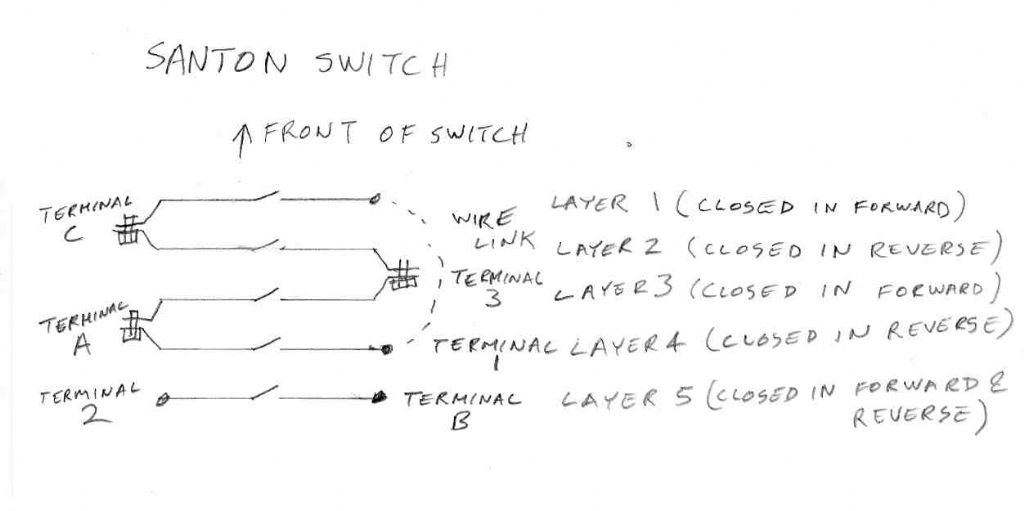 SANTON SWITCH
↑ FRONT OF SWITCH
TERMINAL C
WIRE LINK
LAYER 1 (CLOSED IN FORWARD)
LAYER 2 (CLOSED IN REVERSE)
TERMINAL 3
LAYER 3 (CLOSED IN FORWARD)
TERMINAL A
TERMINAL 1
LAYER 4 (CLOSED IN REVERSE)
TERMINAL 2
TERMINAL B
LAYER 5 (CLOSED IN FORWARD &
REVERSE)